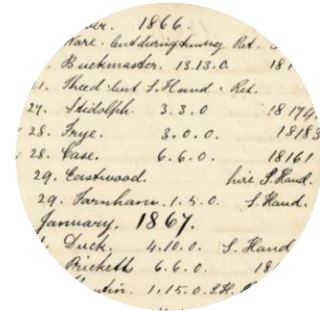 er. 1866.
Ware. lent during having Ret. S
Buckmaster. 13.13.0. 181
21. Theed lent S. Hand. Ret.
27. Stidolph. 3.3.0 18179
28. Frye. 3.0.0. 18183
28. Case. 6.6.0. 18161
29. Eastwood. hire S. Hand.
29. Farnham. 1.5.0. S. Hand.
January. 1867.
1. Duck. 4.10.0. S. Hand
Prickett 6.6.0. 18
tin. 1.15.0. S.H.